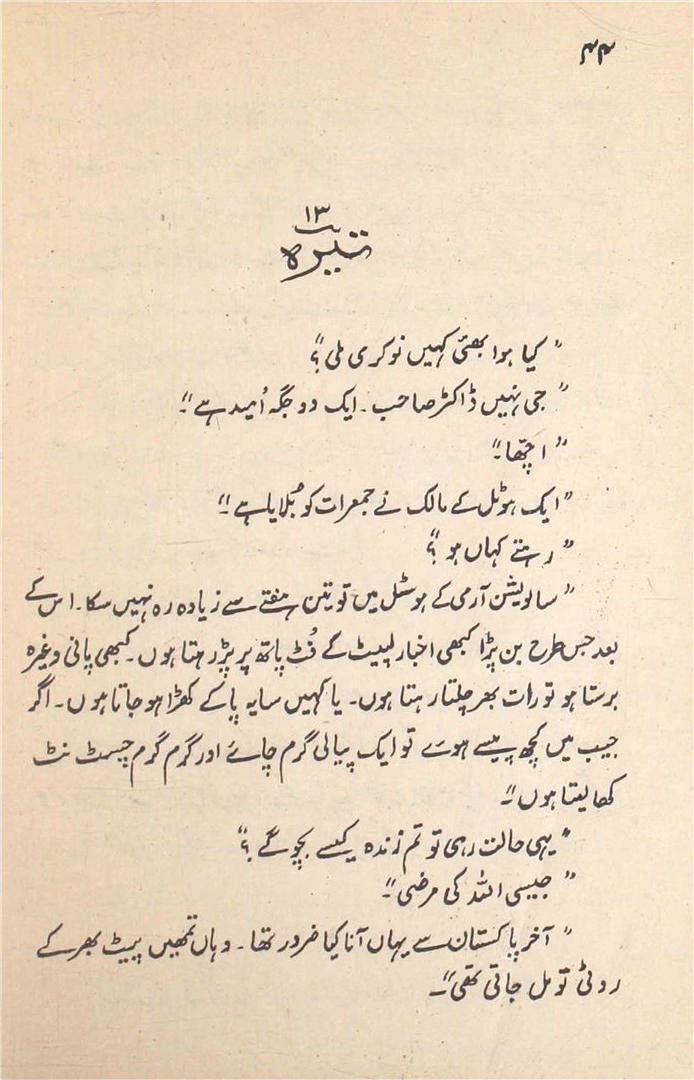 ۴۴
۱۳
تیرہ
"کیا ہوا بھئی کہیں نوکری ملی؟"
"جی نہیں ڈاکٹر صاحب۔ ایک دو جگہ اُمید ہے"۔
"اچھا۔"
"ایک ہوٹل کے مالک نے جمعرات کو بُلایا ہے۔"
"رہتے کہاں ہو؟"
"سالویشن آرمی کے ہوسٹل میں تو تین ہفتے سے زیادہ رہ نہیں سکا۔ اس کے
بعد جس طرح بن پڑا کبھی اخبار لپیٹ کے فُٹ پاتھ پر پڑ رہتا ہوں۔ کبھی پانی وغیرہ
برستا ہو تو رات بھر چلتا رہتا ہوں۔ یا کہیں سایہ پا کے کھڑا ہو جاتا ہوں۔ اگر
جیب میں کچھ پیسے ہوئے تو ایک پیالی گرم چائے اور گرم گرم چسٹ نٹ
کھا لیتا ہوں"۔
"یہی حالت رہی تو تم زندہ کیسے بچو گے؟"
"جیسی اللہ کی مرضی"۔
"آخر پاکستان سے یہاں آنا کیا ضرور تھا۔ وہاں تمھیں پیٹ بھر کے
روٹی تو مل جاتی تھی"۔